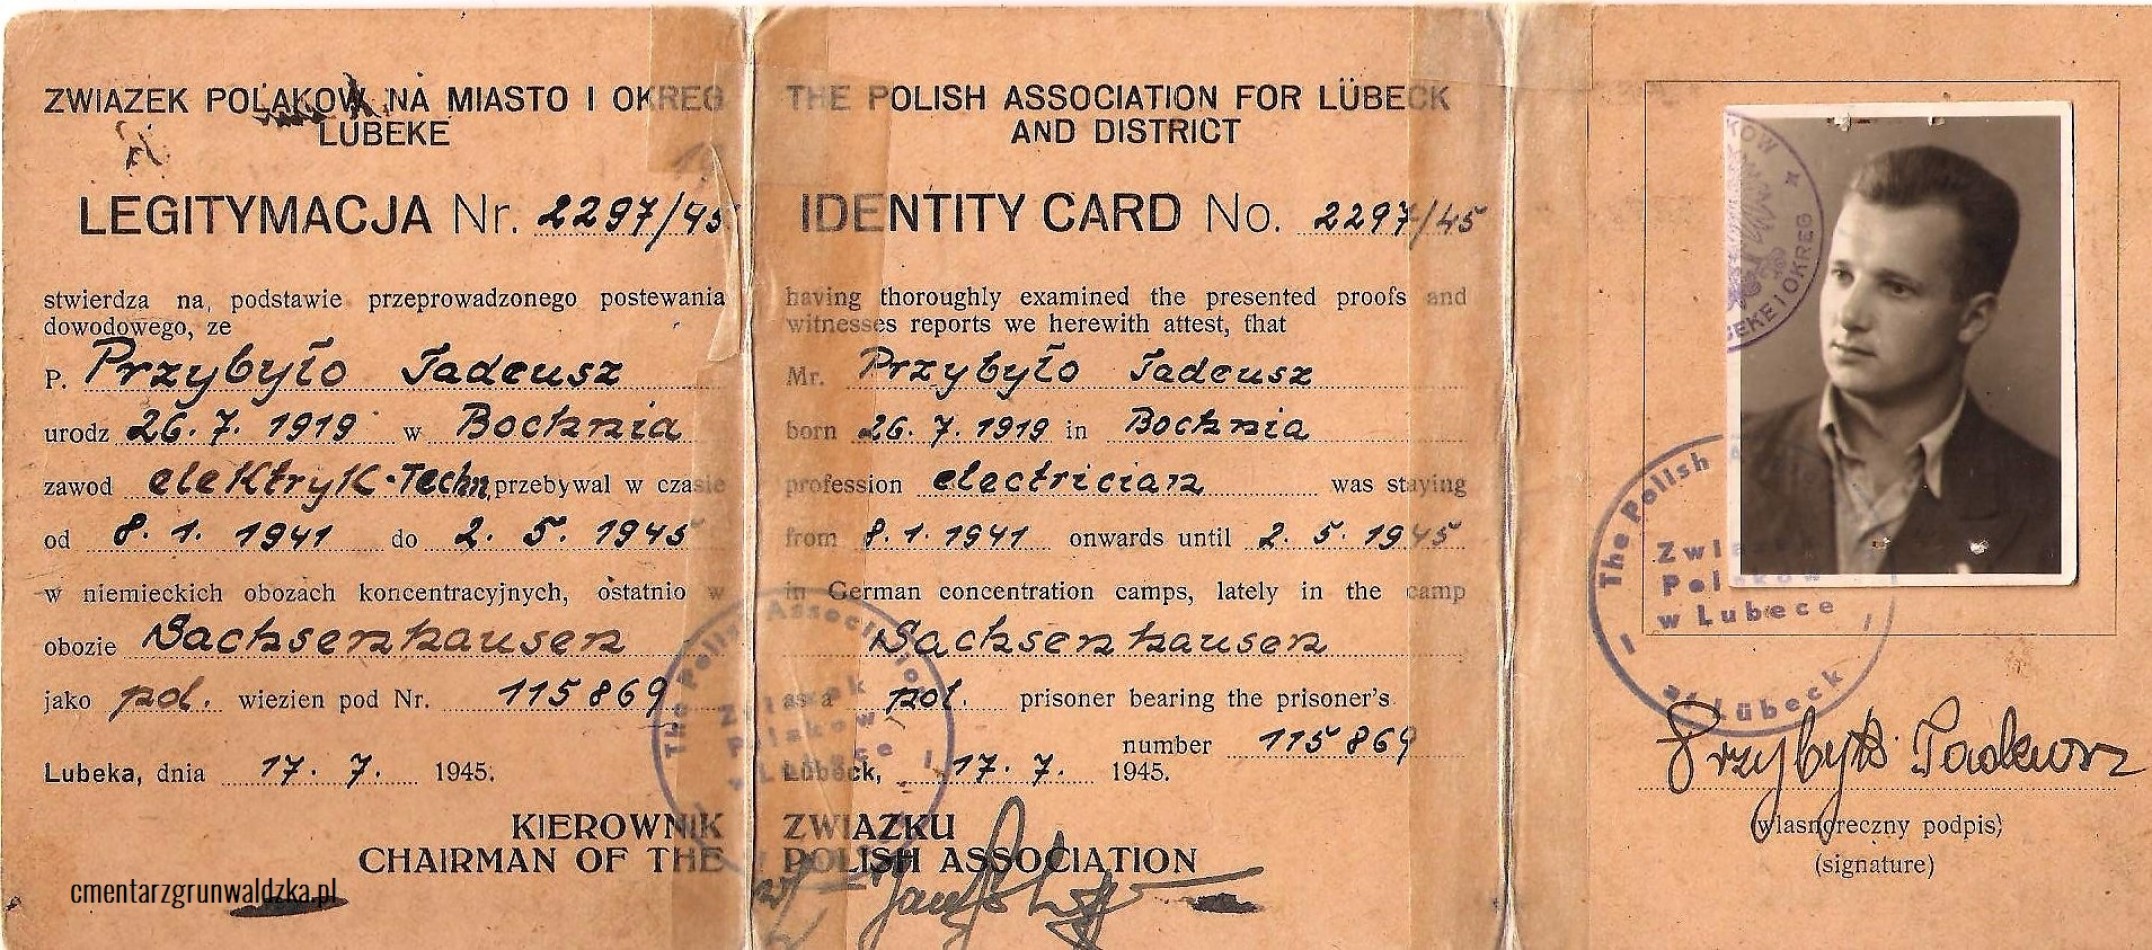 ZWIAZEK POLAKOW NA MIASTO I OKREG
LUBEKE
LEGITYMACJA Nr. 2297/45
stwierdza na, podstawie przeprowadzonego postewania
dowodowego, ze
P. Przybyło Tadeusz
urodz 26. 7. 1919 w Bochnia
zawod elektryk-Techn przebywal w czasie
od 8. 1. 1941 do 2. 5. 1945
w niemieckich obozach koncentracyjnych, ostatnio w
obozie Sachsenhausen
jako pol. wiezien pod Nr. 115869
Lubeka, dnia 17. 7. 1945.
KIEROWNIK
CHAIRMAN OF THE
cmentarzgrunwaldzka.pl
THE POLISH ASSOCIATION FOR LÜBECK
AND DISTRICT
IDENTITY CARD No. 2297/45
having thoroughly examined the presented proofs and
witnesses reports we herewith attest, that
Mr. Przybyło Tadeusz
born 26. 7. 1919 in Bochnia
profession electrician was staying
from 8. 1. 1941 onwards until 2. 5. 1945
in German concentration camps, lately in the camp
Sachsenhausen
as a pol. prisoner bearing the prisoner's
number 115869
Lübeck, 17. 7. 1945.
ZWIAZKU
POLISH ASSOCIATION
The Polish Association
Związek
Polakow
w Lubece
KOW
BEKE I OKREG
The Polish
Zwi
Polakow
w Lubece
at Lübeck
Przybyło Tadeusz
(wlasnoreczny podpis)
(signature)